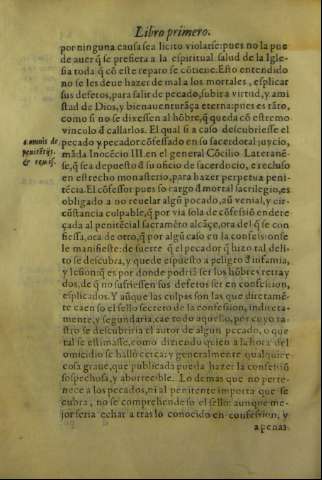 Libro primero.
por ninguna causa sea licito violarse: pues no la pue
de auer q̃ se prefiera a la espiritual salud de la Igle-
sia toda q̃ cõ este reparo se cõtiene. Esto entendido
no se les deue hazer de mal a los mortales, esplicar
sus defetos, para salir de pecado, subir a virtud, y ami
stad de Dios, y bienauenturãça eterna: pues es tãto,
como si no se dixessen al hõbre, q̃ queda cõ estremo
vinculo d̃ callarlos. El qual si a caso descubriesse el
omnis de
pecado y pecador cõfessado en su sacerdotal juyzio,
penitẽtijs.
mãda Inocẽcio III en el general Cõcilio Lateranẽ-
& remis.
se, q̃ sea depuesto d̃ su oficio de sacerdocio, e recluso
en estrecho monasterio, para hazer perpetua peni-
tẽcia. El cõfessor pues so cargo d̃ mortal sacrilegio, es
obligado a no reuelar algũ pecado, aũ venial, y cir-
cũstancia culpable, q̃ por via sola de cõfessiõ endere
çada al penitẽcial sacramẽto alcãçe, ora del q̃ se con
fiessa, oca de otro, q̃ por algũ caso en la confession se
le manifieste: de fuerte q̃ el pecador q̃ hizo tal deli-
to se descubra, y quede espuesto a peligro d̃ infamia,
y lesion: q̃ es por donde podriã ser los hõbres retray
dos, de q̃ no supiessen sus defetos ser en confession,
esplicados. Y aũque las culpas son las que diretamẽ-
te caen so el sello secreto de la confession, indirecta-
mente, y segundaria, cae todo aquello, por cuyo ra-
stro se descubriria el autor de algun pecado, o que
tal se estimasse, como diziendo quien a la hora del
omicidio se hallò cerca: y generalmente qualquier
cosa graue, que publicada pueda hazer la confessiõ
sospechosa, y aborrecible. Lo demas que no perte-
nece a los pecados, ni al penitente importa que se
cubra, no se comprehende so el sello: aunque me-
jor seria echar a tras lo conocido en confession, y
apenas